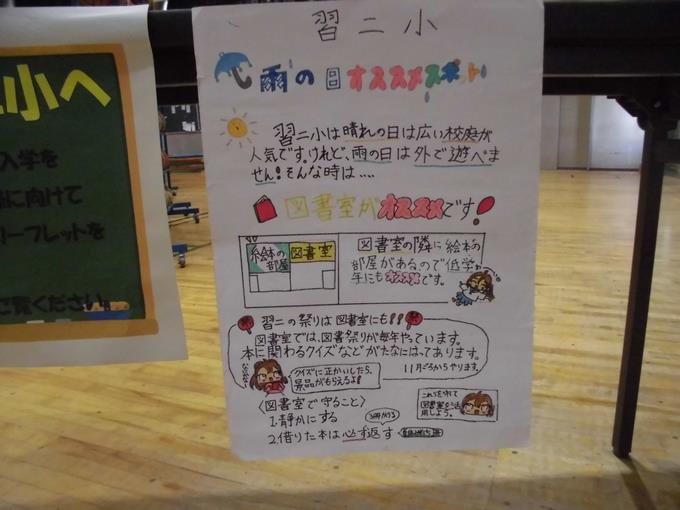 小へ
入学を
に向けて
リーフレットを
ご覧ください
習二小
雨の日オススメスポット
習二小は晴れの日は広い校庭が
人気です。けれど、雨の日は外で遊べま
せん!そんな時は....
図書室がオススメです!
絵本の部屋
図書室
図書室の隣に絵本の
部屋があるので低学
年にもオススメです。
習二の祭りは図書室にも!!
図書室では、図書祭りが毎年やっています。
本に関わるクイズなどがたなにはってあります。
11月ごろからやります。
クイズに正かいしたら、
景品がもらえるよ!
〈図書室で守ること〉
1.静かにする
2.借りた本は必ず返す
これを守て
図書室を活
用しよう。